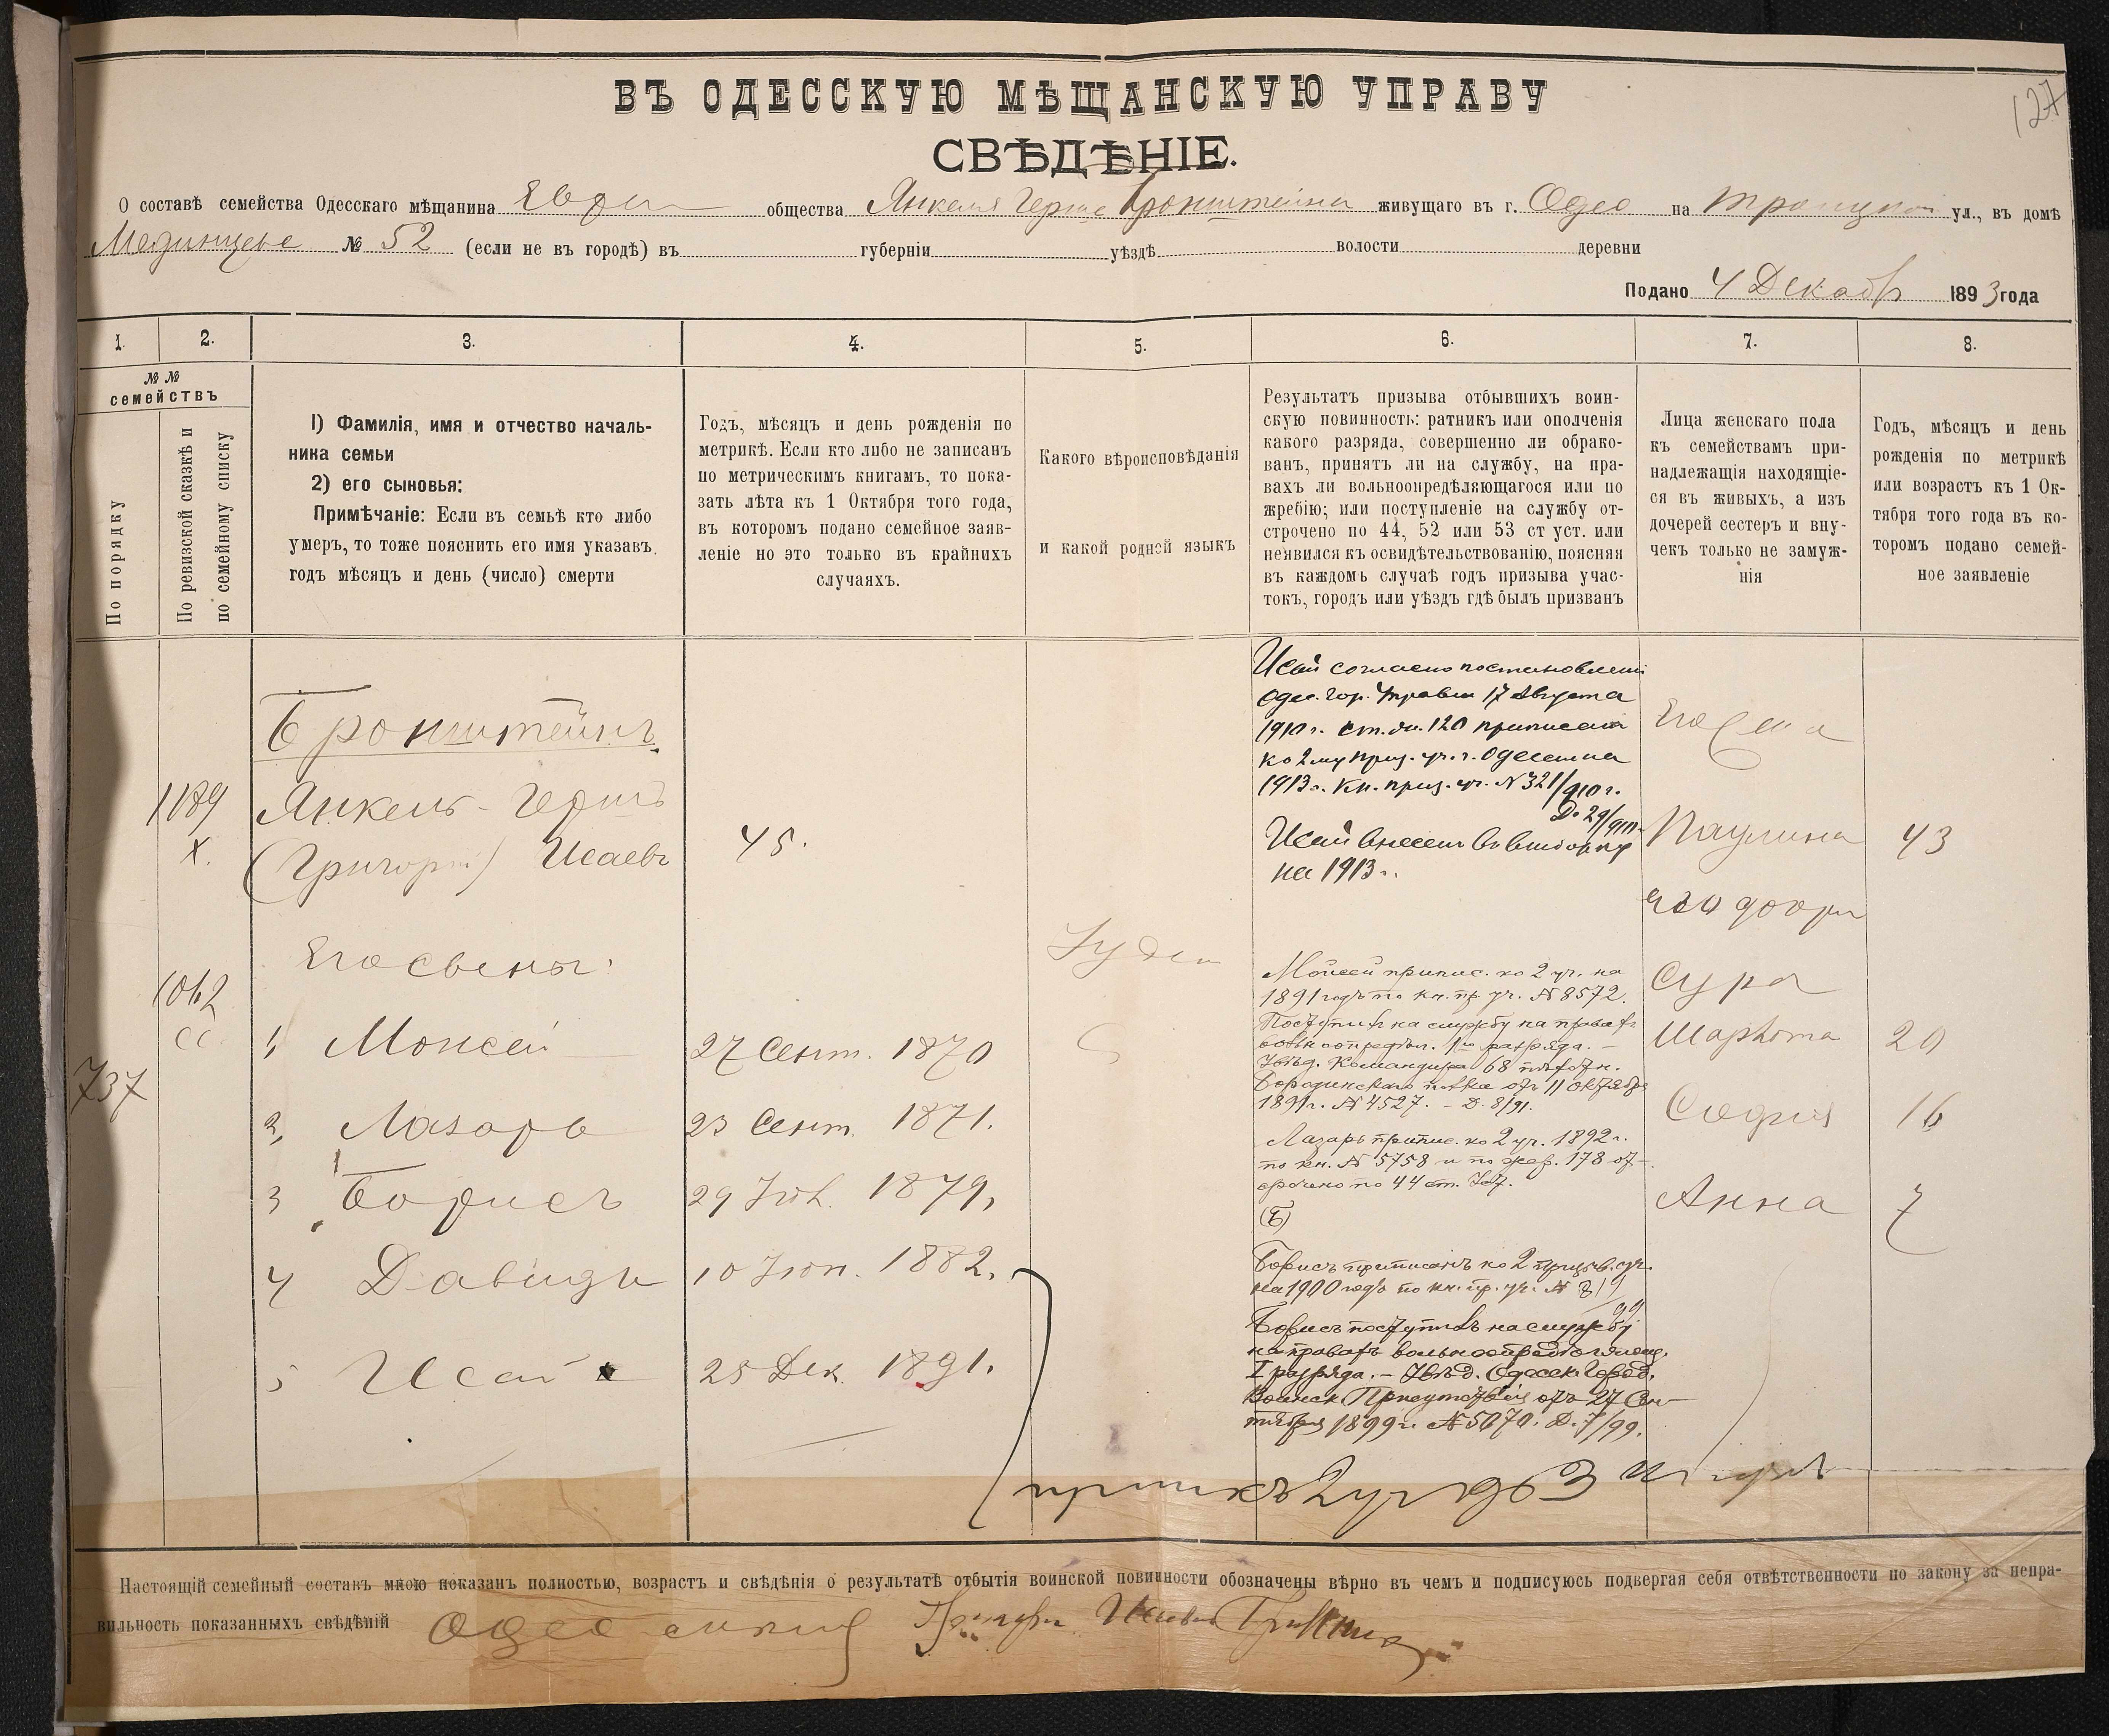 127
ВЪ ОДЕССКУЮ МѢЩАНСКУЮ УПРАВУ
СВѢДѢНІЕ.
О составѣ семейства Одесскаго мѣщанина Евреи общества Янкеля Герша Бронштейна живущаго въ г. Одес на Троицкой ул., въ домѣ
№ 52 (если не въ городѣ) въ губерніи уѣздѣ волости деревни
Подано 4 Декабр 1893 года
1. 2. 3. 4. 5. 6. 7. 8.
№ №
семействъ
По порядку
По ревизской сказкѣ и
по семейному списку
1) Фамилія, имя и отчество началь-
ника семьи
2) его сыновья:
Примѣчаніе: Если въ семьѣ кто либо
умеръ, то тоже пояснить его имя указавъ
годъ мѣсяцъ и день (число) смерти
Годъ, мѣсяцъ и день рожденія по
метрикѣ. Если кто либо не записанъ
по метрическимъ книгамъ, то пока-
зать лѣта къ 1 Октября того года,
въ которомъ подано семейное заяв-
леніе но это только въ крайнихъ
случаяхъ.
Какого вѣроисповѣданія
и какой родной языкъ
Результатъ призыва отбывшихъ воин-
скую повинность: ратникъ или ополченія
какого разряда, совершенно ли обрако-
ванъ, принятъ ли на службу, на пра-
вахъ ли вольноопредѣляющагося или по
жребію; или поступленіе на службу от-
строчено по 44, 52 или 53 ст уст. или
неявился къ освидѣтельствованію, поясняя
въ каждомъ случаѣ годъ призыва учас-
токъ, городъ или уѣздъ гдѣ былъ призванъ
Лица женскаго пола
къ семействамъ при-
надлежащія находящіе-
ся въ живыхъ, а изъ
дочерей сестеръ и вну-
чекъ только не замуж-
нія
Годъ, мѣсяцъ и день
рожденія по метрикѣ
или возрастъ къ 1 Ок-
тября того года въ ко-
торомъ подано семей-
ное заявленіе
Бронштейнъ
1189 Янкель-Гершъ
X. (Григорій) Исаевъ 45.
Его сыны:
1062
737
1, Моисей 27 Сент. 1870
2, Лазарь 23 Сент. 1871.
3 Борисъ 29 Іюл. 1879,
4 Давидъ 10 Іюн. 1882.
5 Исай 25 Дек. 1891.
Іудей
Исай согласно постановлені
Одес. Гор. Управы 17 Августа
1910 г. ст. 120 приписанъ
ко 2му приз. уч. г. Одессы на
1913 г. Кн. приз. уч. № 321/910 г.
Д. 29/911
Исай внесенъ въ выборку
на 1913 г.
Моисей припис. ко 2 уч. на
1891 годъ по кн. пр. уч. № 8572.
Поступилъ на службу на правахъ
вольноопредѣл. 1го разряда. –
Увѣд. Командира 68 пѣхотн.
Бородинскаго полка отъ 11 Октября
1891 г. № 4527. – Д. 8/91.
Лазарь припис. ко 2 уч. 1892 г.
по кн. № 5758 и по жер. 178 от-
срочено по 44 ст. Уст.
(Б)
Борисъ приписанъ ко 2 призыв. уч.
на 1900 годъ по кн. пр. уч. №
Борисъ поступилъ на службу
на правахъ вольноопредѣляющ.
I разряда. – Увѣд. Одесск. Город.
Воинск. Присутствія отъ 27 Сен-
тября 1899 г. № 5670. Д. 7/99.
Его жена
Паулина 43
его дочери
Сура
Шарлота 20
София 16
Анна 7
Настоящій семейный составъ мною показанъ полностью, возрастъ и свѣдѣнія о результатѣ отбытія воинской повинности обозначены вѣрно въ чемъ и подписуюсь подвергая себя отвѣтственности по закону за непра-
вильность показанныхъ свѣдѣній